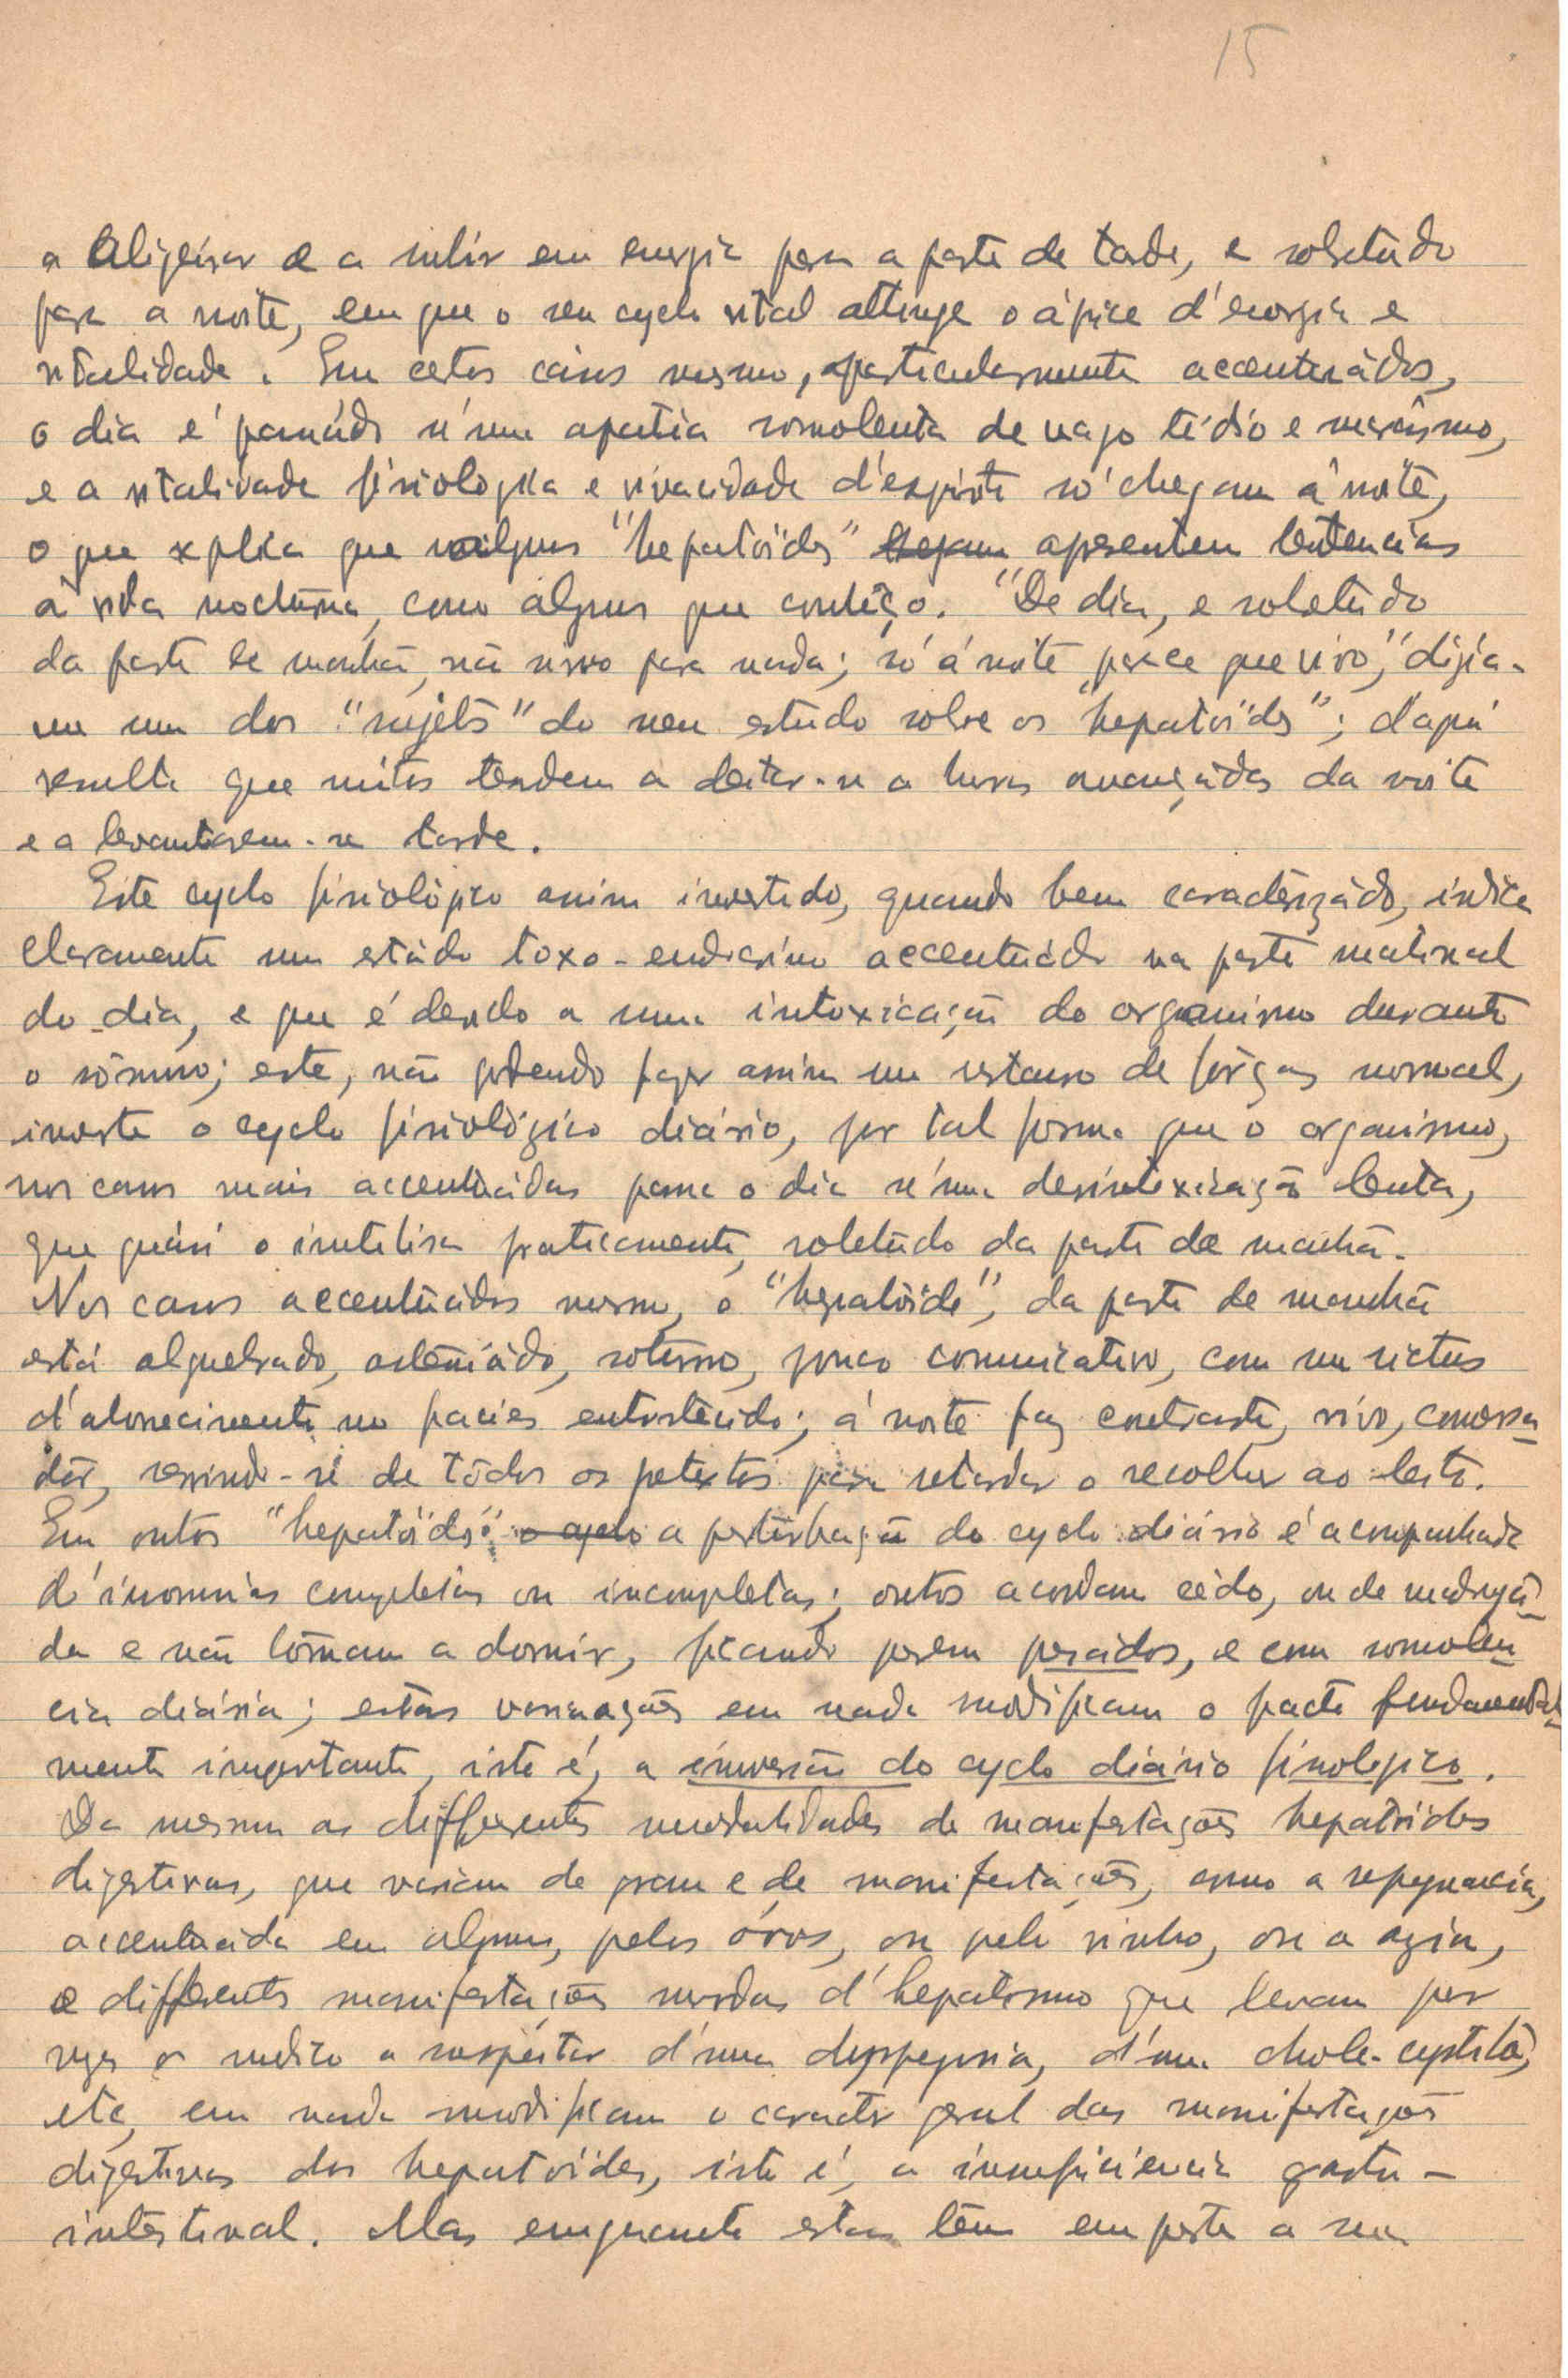 15
a aligeirar e a subir em energia para a parte de tarde, e sobretudo
para a noite, em que o seu cyclo vital attinge o ápice d'energia e
vitalidade. Em certos cásos mesmo, particularmente accentuádos,
o dia é passádo n'uma apatia somnolenta de vago tédio e marásmo,
e a vitalidade fisiologica e vivacidade d'espirito só chegam á noite,
o que explica que alguns "hepatoïdes" apresentem tentencias
á vida nocturna, como alguns que conheço. "De dia, e sobretudo
da parte de manhã, não sirvo para nada; só á noite parece que vivo," dizia-
me um dos "sujets" do meu estudo sobre os "hepatoïdes"; d'aqui
resulta que muitos tendem a deitar-se a horas avançádas da noite
e a levantarem-se tarde.
Este cyclo fisiológico assim invertido, quando bem caracterizádo, indica
claramente um estádo toxo-endocrino accentuádo na parte matinal
do dia, e que é devido a uma intoxicação do organismo durante
o sômno; este, não podendo fazer assim um restauro de fôrças normal,
inverte o cyclo fisiológico diário, por tal forma que o organismo,
nos casos mais accentuádos passa o dia n'uma desintoxicação lenta,
que quási o inutilisa praticamente, sobretudo da parte de manhã.
Nos casos accentuádos mesmo, o "hepatoïde", da parte de manhã
está alquebrado, asteniádo, soturno, pouco comunicativo, com um rictus
d'aborrecimento no facies entristecido; á noite faz contraste, vivo, conversa-
dôr, servindo-se de tôdos os pretextos para retardar o recolher ao leito.
Em outros "hepatoïdes" o cyclo a perturbação do cyclo diário é acompanhada
d'insomnias completas ou incompletas; outros acordam cêdo, ou de madrugá-
da e não tôrnam a dormir, ficando porém pesádos, e com somnolen-
cia diária; estas variações em nada modificam o facto fundamental-
mente importante, isto é, a inversão do cyclo diário fisiologico.
Da mesma as differentes modalidades de manifestações hepatoïdes
digestivas, que variam de grau e de manifestações, como a repugnancia,
accentuada em alguns, pelos óvos, ou pelo vinho, ou a azia,
e differentes manifestações d'hepatismo que levam por
vezes o medico a suspeitar d'uma dyspepsia, d'uma chole-cystite,
etc, em nada modificam o caracter geral das manifestações
digestivas dos hepatoïdes, isto é, a insuficiencia gastro-
intestinal. Mas emquanto estas têm em parte a sua